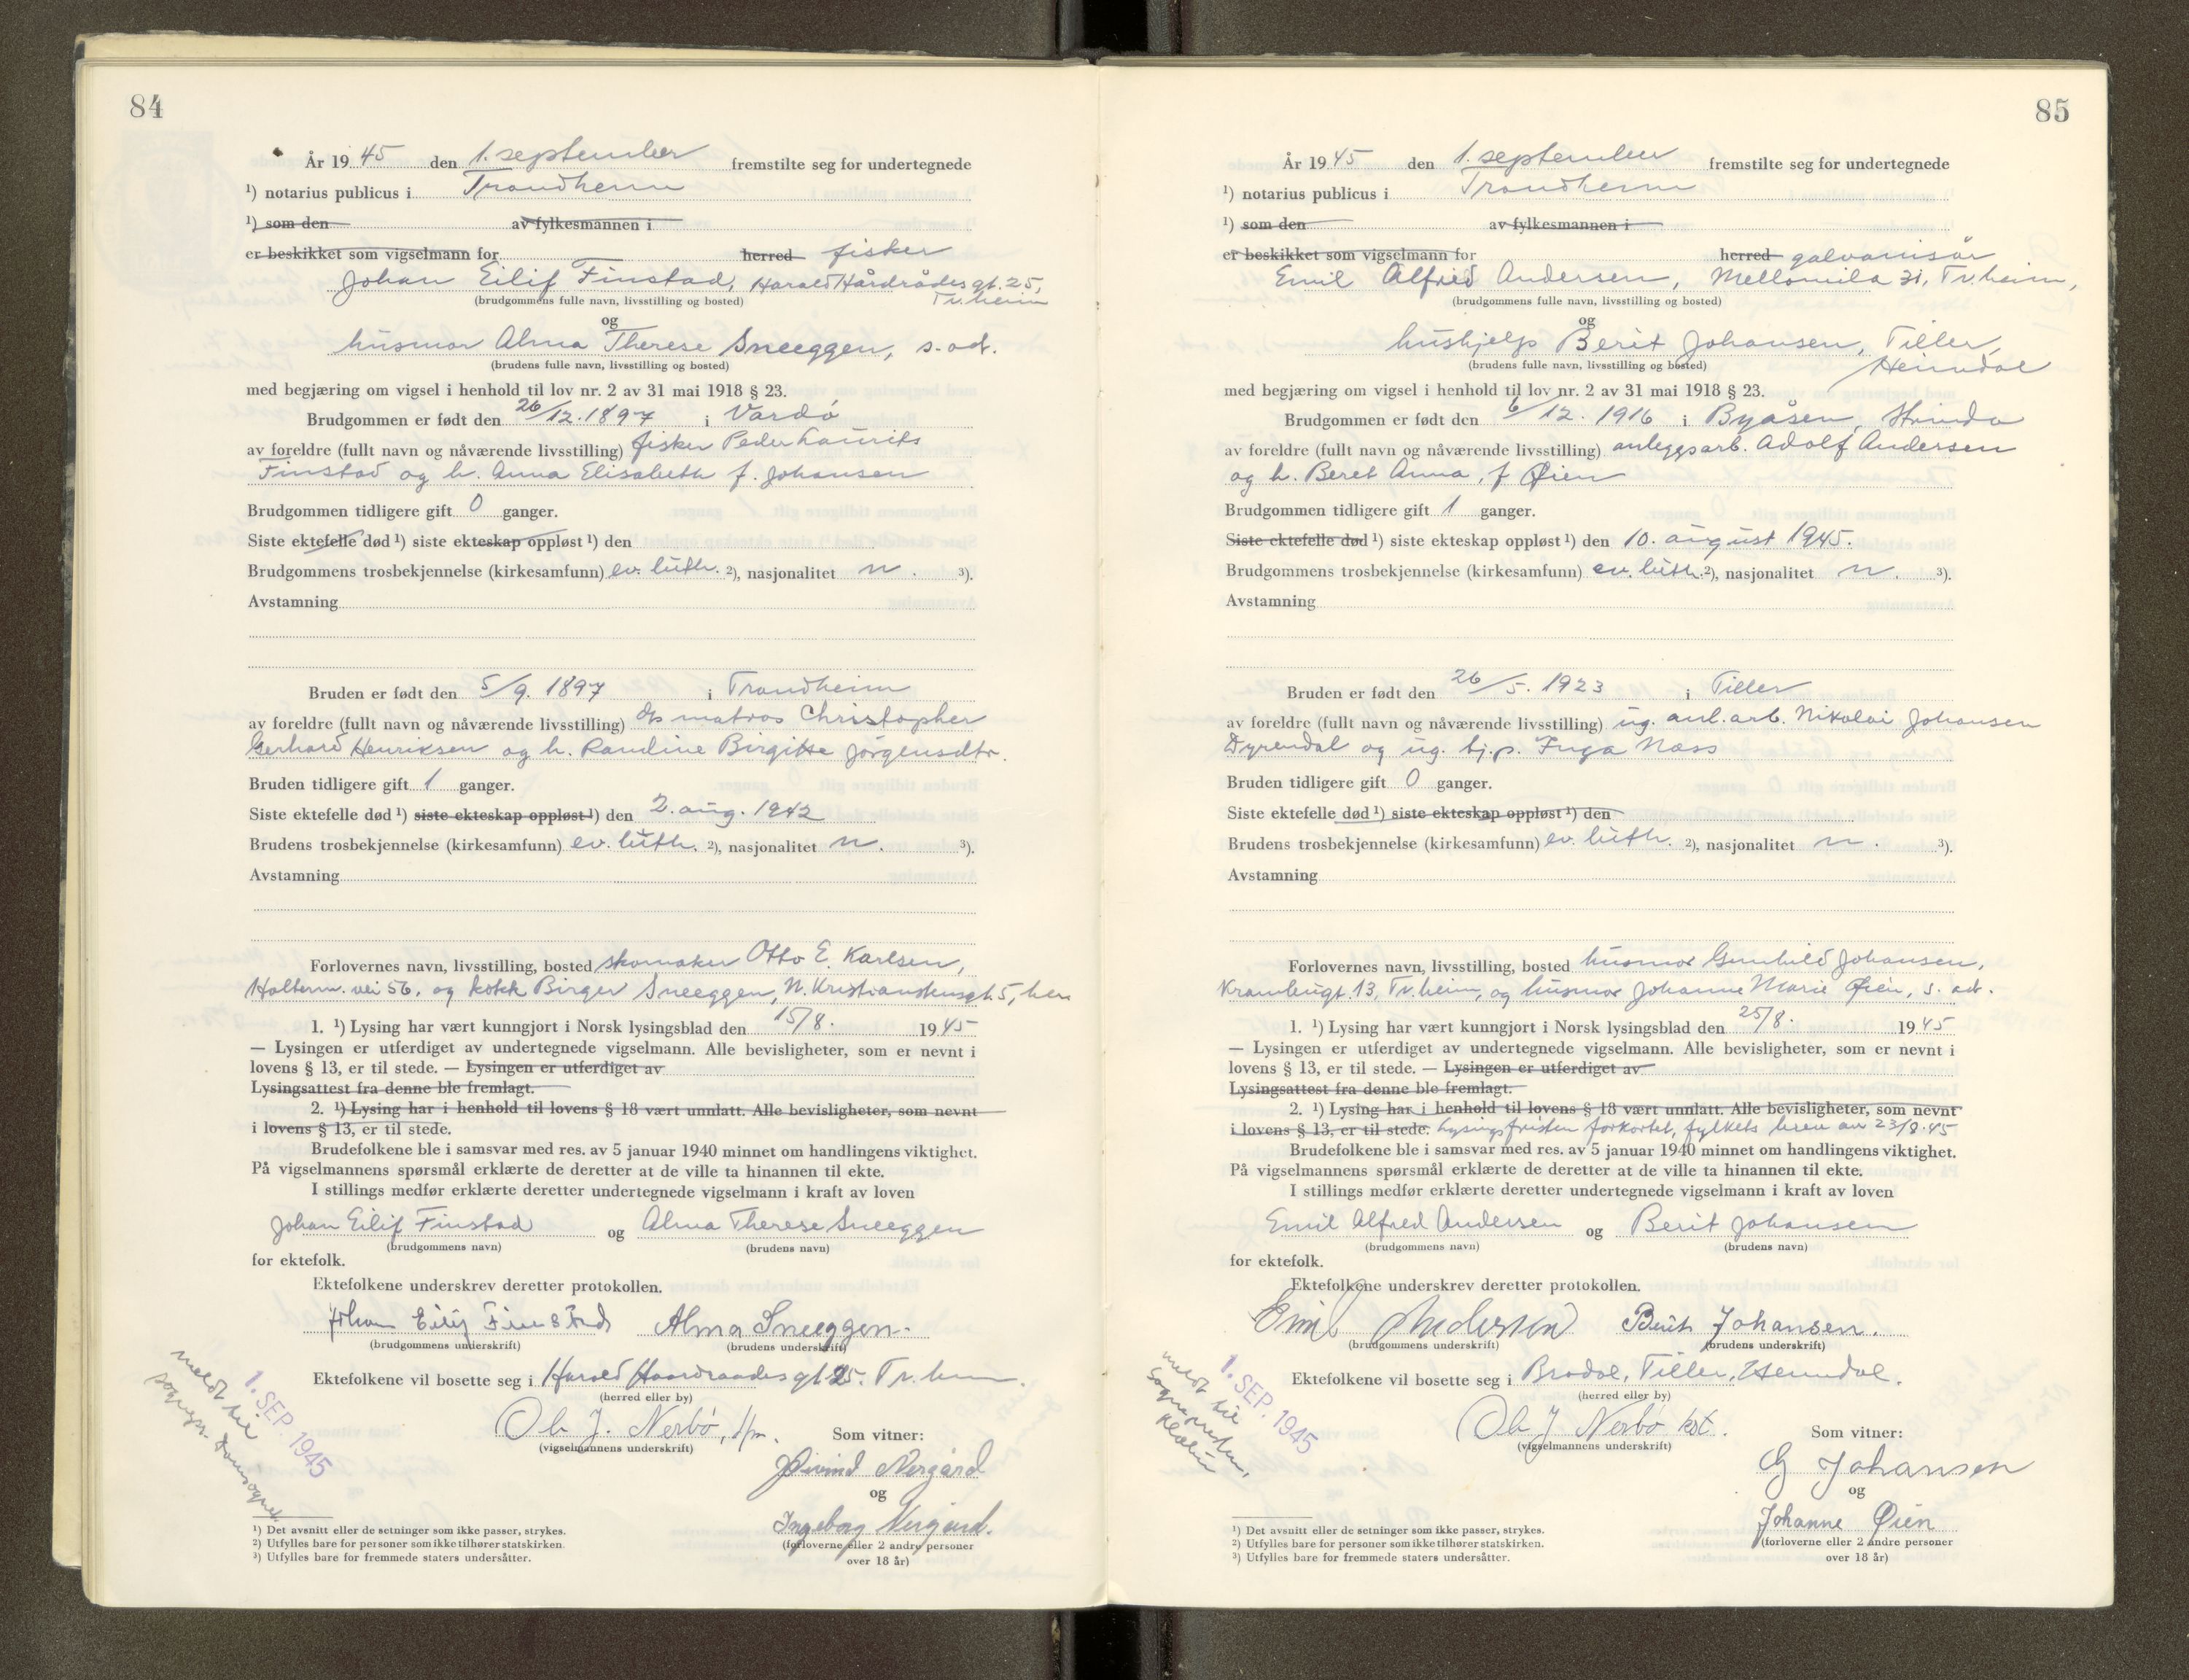 84
År 1945 den 1. september fremstilte seg for undertegnede
¹) notarius publicus i Trondheim
¹) som den av fylkesmannen i
er beskikket som vigselmann for herred fisker
Johan Eilif Finstad, Harald Hårdrådes gt. 25,
Tr.heim
(brudgommens fulle navn, livsstilling og bosted)
og
husmor Alma Therese Sneeggen, s. ad.
(brudens fulle navn, livsstilling og bosted)
med begjæring om vigsel i henhold til lov nr. 2 av 31 mai 1918 § 23.
Brudgommen er født den 26/12.1897 i Vardø
av foreldre (fullt navn og nåværende livsstilling) fisker Peder Laurits
Finstad og h. Anna Elisabeth f. Johansen
Brudgommen tidligere gift 0 ganger.
Siste ektefelle død ¹) siste ekteskap oppløst ¹) den
Brudgommens trosbekjennelse (kirkesamfunn) ev. luth. ²), nasjonalitet n. ³).
Avstamning
Bruden er født den 5/9. 1897 i Trondheim
av foreldre (fullt navn og nåværende livsstilling) matros Christopher
Gerhard Henriksen og h. Randine Birgitte Jørgensdtr.
Bruden tidligere gift 1 ganger.
Siste ektefelle død ¹) siste ekteskap oppløst ¹) den 2. aug. 1942
Brudens trosbekjennelse (kirkesamfunn) ev. luth. ²), nasjonalitet n. ³).
Avstamning
Forlovernes navn, livsstilling, bosted skomaker Otto E. Karlsen,
Holterm. vei 56, og kokk Birger Sneeggen, N. Kristianstensgt. 5, her
1. ¹) Lysing har vært kunngjort i Norsk lysingsblad den 15/8. 1945
— Lysingen er utferdiget av undertegnede vigselmann. Alle bevisligheter, som er nevnt i
lovens § 13, er til stede. — Lysingen er utferdiget av
Lysingsattest fra denne ble fremlagt.
2. ¹) Lysing har i henhold til lovens § 18 vært unnlatt. Alle bevisligheter, som nevnt
i lovens § 13, er til stede.
Brudefolkene ble i samsvar med res. av 5 januar 1940 minnet om handlingens viktighet.
På vigselmannens spørsmål erklærte de deretter at de ville ta hinannen til ekte.
I stillings medfør erklærte deretter undertegnede vigselmann i kraft av loven
Johan Eilif Finstad og Alma Therese Sneeggen
(brudgommens navn) (brudens navn)
for ektefolk.
Ektefolkene underskrev deretter protokollen.
Johan Eilif Finstad Alma Sneeggen.
(brudgommens underskrift) (brudens underskrift)
Ektefolkene vil bosette seg i Harald Haardraades gt. 25. Tr.heim.
(herred eller by)
Ole J. Nerbø,
(vigselmannens underskrift)
Som vitner:
Øivind Nergård
og
Ingeborg Nergård.
(forloverne eller 2 andre personer
over 18 år)
meldt til
sognepr. Domsognet
1. SEP. 1945
¹) Det avsnitt eller de setninger som ikke passer, strykes.
²) Utfylles bare for personer som ikke tilhører statskirken.
³) Utfylles bare for fremmede staters undersåtter.
85
År 1945 den 1. september fremstilte seg for undertegnede
¹) notarius publicus i Trondheim
¹) som den av fylkesmannen i
er beskikket som vigselmann for herred galvanisør
Emil Alfred Andersen, Mellomila 31, Tr.heim,
(brudgommens fulle navn, livsstilling og bosted)
og
hushjelp Berit Johansen, Tiller,
Heimdal
(brudens fulle navn, livsstilling og bosted)
med begjæring om vigsel i henhold til lov nr. 2 av 31 mai 1918 § 23.
Brudgommen er født den 6/12. 1916 i Byåsen, Strinda
av foreldre (fullt navn og nåværende livsstilling) anleggsarb. Adolf Andersen
og h. Beret Anna, f. Øien
Brudgommen tidligere gift 1 ganger.
Siste ektefelle død ¹) siste ekteskap oppløst ¹) den 10. august 1945.
Brudgommens trosbekjennelse (kirkesamfunn) ev. luth. ²), nasjonalitet n. ³).
Avstamning
Bruden er født den 26/5. 1923 i Tiller
av foreldre (fullt navn og nåværende livsstilling) ug. anl.arb. Nikolai Johansen
Dyrendal og ug. hj.p. Inga Næss
Bruden tidligere gift 0 ganger.
Siste ektefelle død ¹) siste ekteskap oppløst ¹) den
Brudens trosbekjennelse (kirkesamfunn) ev. luth. ²), nasjonalitet n. ³).
Avstamning
Forlovernes navn, livsstilling, bosted husmor Gunhild Johansen,
Krambugt. 13, Tr.heim, og husmor Johanne Marie Øien, s. ad.
1. ¹) Lysing har vært kunngjort i Norsk lysingsblad den 25/8. 1945
— Lysingen er utferdiget av undertegnede vigselmann. Alle bevisligheter, som er nevnt i
lovens § 13, er til stede. — Lysingen er utferdiget av
Lysingsattest fra denne ble fremlagt.
2. ¹) Lysing har i henhold til lovens § 18 vært unnlatt. Alle bevisligheter, som nevnt
i lovens § 13, er til stede. Lysingsfristen forkortet, fylkets brev av 23/8.45
Brudefolkene ble i samsvar med res. av 5 januar 1940 minnet om handlingens viktighet.
På vigselmannens spørsmål erklærte de deretter at de ville ta hinannen til ekte.
I stillings medfør erklærte deretter undertegnede vigselmann i kraft av loven
Emil Alfred Andersen og Berit Johansen
(brudgommens navn) (brudens navn)
for ektefolk.
Ektefolkene underskrev deretter protokollen.
Emil Andersen Berit Johansen.
(brudgommens underskrift) (brudens underskrift)
Ektefolkene vil bosette seg i Brodal, Tiller, Heimdal.
(herred eller by)
Ole J Nerbø kst.
(vigselmannens underskrift)
Som vitner:
G Johansen
og
Johanne Øien
(forloverne eller 2 andre personer
over 18 år)
meldt til
sognepresten,
Klæbu
1. SEP. 1945
¹) Det avsnitt eller de setninger som ikke passer, strykes.
²) Utfylles bare for personer som ikke tilhører statskirken.
³) Utfylles bare for fremmede staters undersåtter.